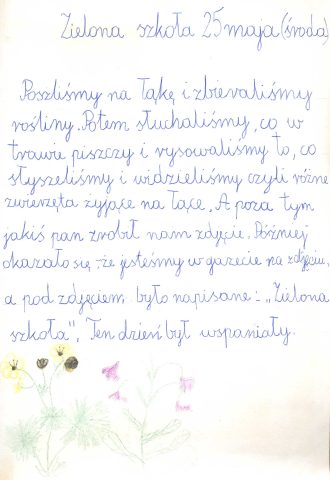 Zielona szkoła 25 maja (środa)
Poszliśmy na łąkę i zbieraliśmy
rośliny. Potem słuchaliśmy, co w
trawie piszczy i rysowaliśmy to, co
słyszeliśmy i widzieliśmy czyli różne
zwierzęta żyjące na łące. A poza tym
jakiś pan zrobił nam zdjęcie. Później
okazało się, że jesteśmy w gazecie na zdjęciu,
a pod zdjęciem było napisane: - „Zielona
szkoła". Ten dzień był wspaniały.